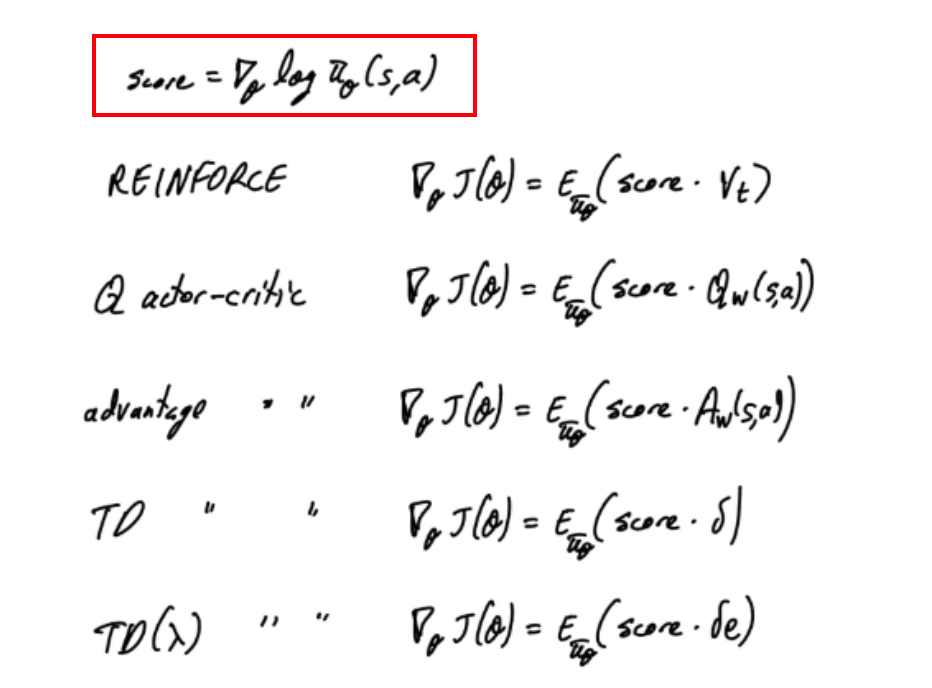 score = ∇θ log πθ(s,a)
REINFORCE ∇θ J(θ) = Eπθ(score · Vt)
Q actor-critic ∇θ J(θ) = Eπθ(score · Qw(s,a))
advantage " " ∇θ J(θ) = Eπθ(score · Aw(s,a))
TD " " ∇θ J(θ) = Eπθ(score · δ)
TD(λ) " " ∇θ J(θ) = Eπθ(score · δe)